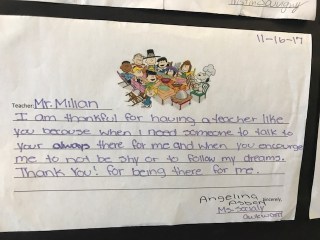 11-16-17
Teacher Mr. Milian
I am thankful for having a teacher like
you because when I need someone to talk to
your always there for me and when you encourage
me to not be shy or to follow my dreams.
Thank You! for being there for me.
Angelina
Ms. Socially
awkward